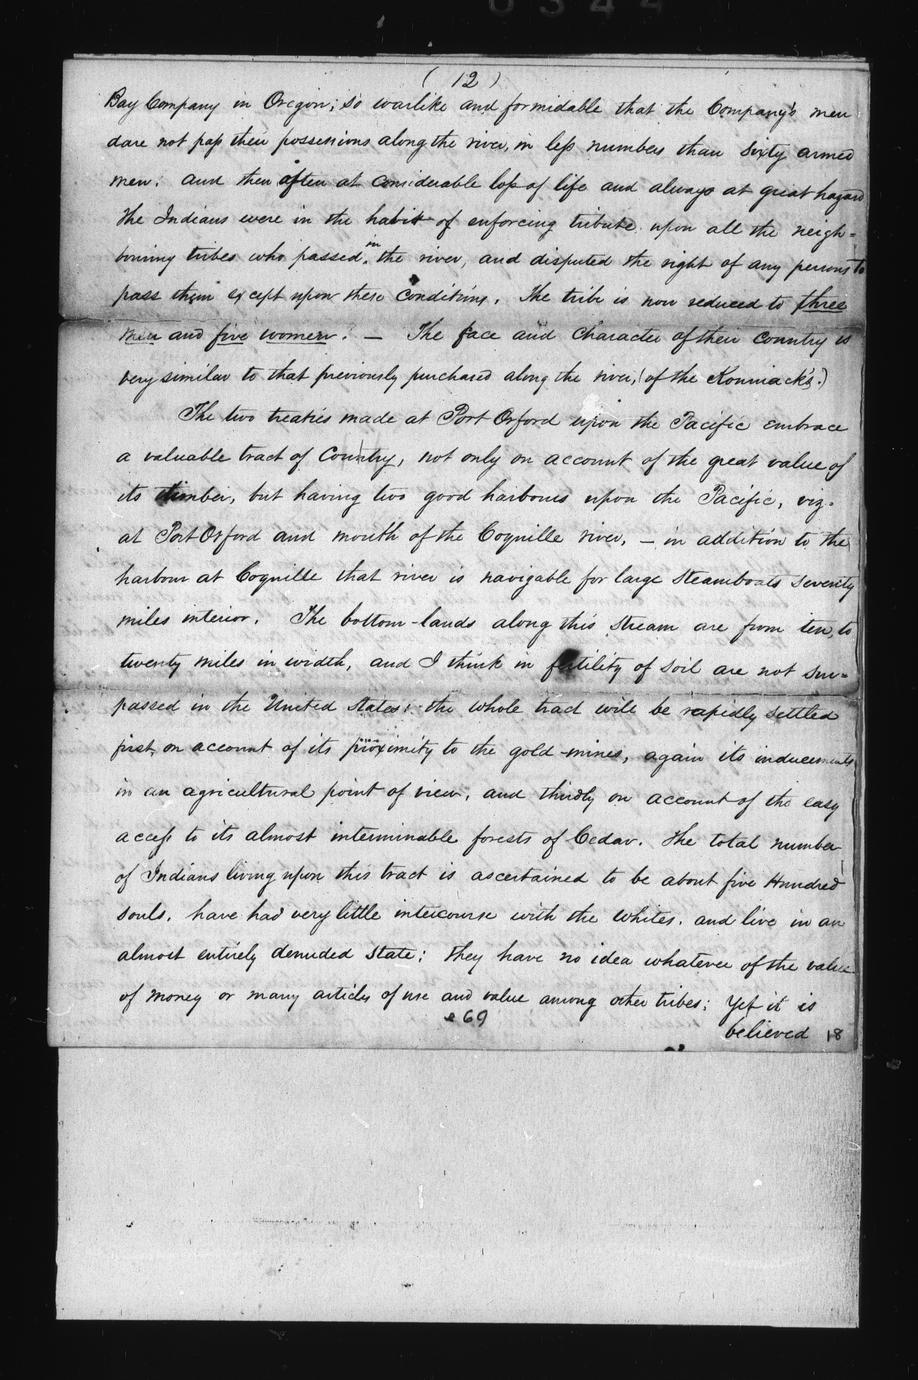 ( 12 )
Bay Company in Oregon; so warlike and formidable that the Company's men
dare not pass their possessions along the river, in less numbers than sixty armed
men: and then often at considerable loss of life and always at great hazard
The Indians were in the habit of enforcing tribute upon all the neigh-
boring tribes who passed in the river, and disputed the right of any persons to
pass them except upon these conditions. The tribe is now reduced to three
men and five women. — The face and character of their country is
very similar to that previously purchased along the river, (of the Konniack's.)
The two treaties made at Port Orford upon the Pacific embrace
a valuable tract of Country, not only on account of the great value of
its timber, but having two good harbours upon the Pacific, viz.
at Port Orford and mouth of the Coquille river, — in addition to the
harbour at Coquille that river is navigable for large Steamboats seventy
miles interior. The bottom-lands along this Stream are from ten to
twenty miles in width, and I think in fertility of soil are not sur-
passed in the United States: the whole tract will be rapidly settled
first, on account of its proximity to the gold-mines, again its inducements
in an agricultural point of view, and thirdly on account of the easy
access to its almost interminable forests of Cedar. The total number
of Indians living upon this tract is ascertained to be about five Hundred
souls, have had very little intercourse with the whites, and live in an
almost entirely denuded State: they have no idea whatever of the value
of money or many articles of use and value among other tribes; Yet it is
e 69
believed 18